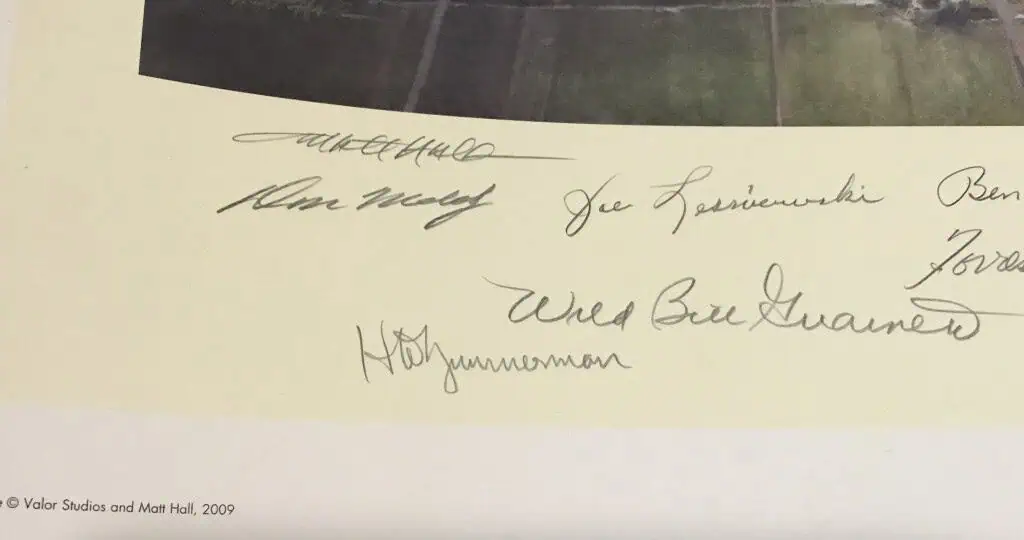 Matt Hall
Don Malarkey
Joe Lesniewski Ben
Wild Bill Guarnere
HW Zimmerman
© Valor Studios and Matt Hall, 2009